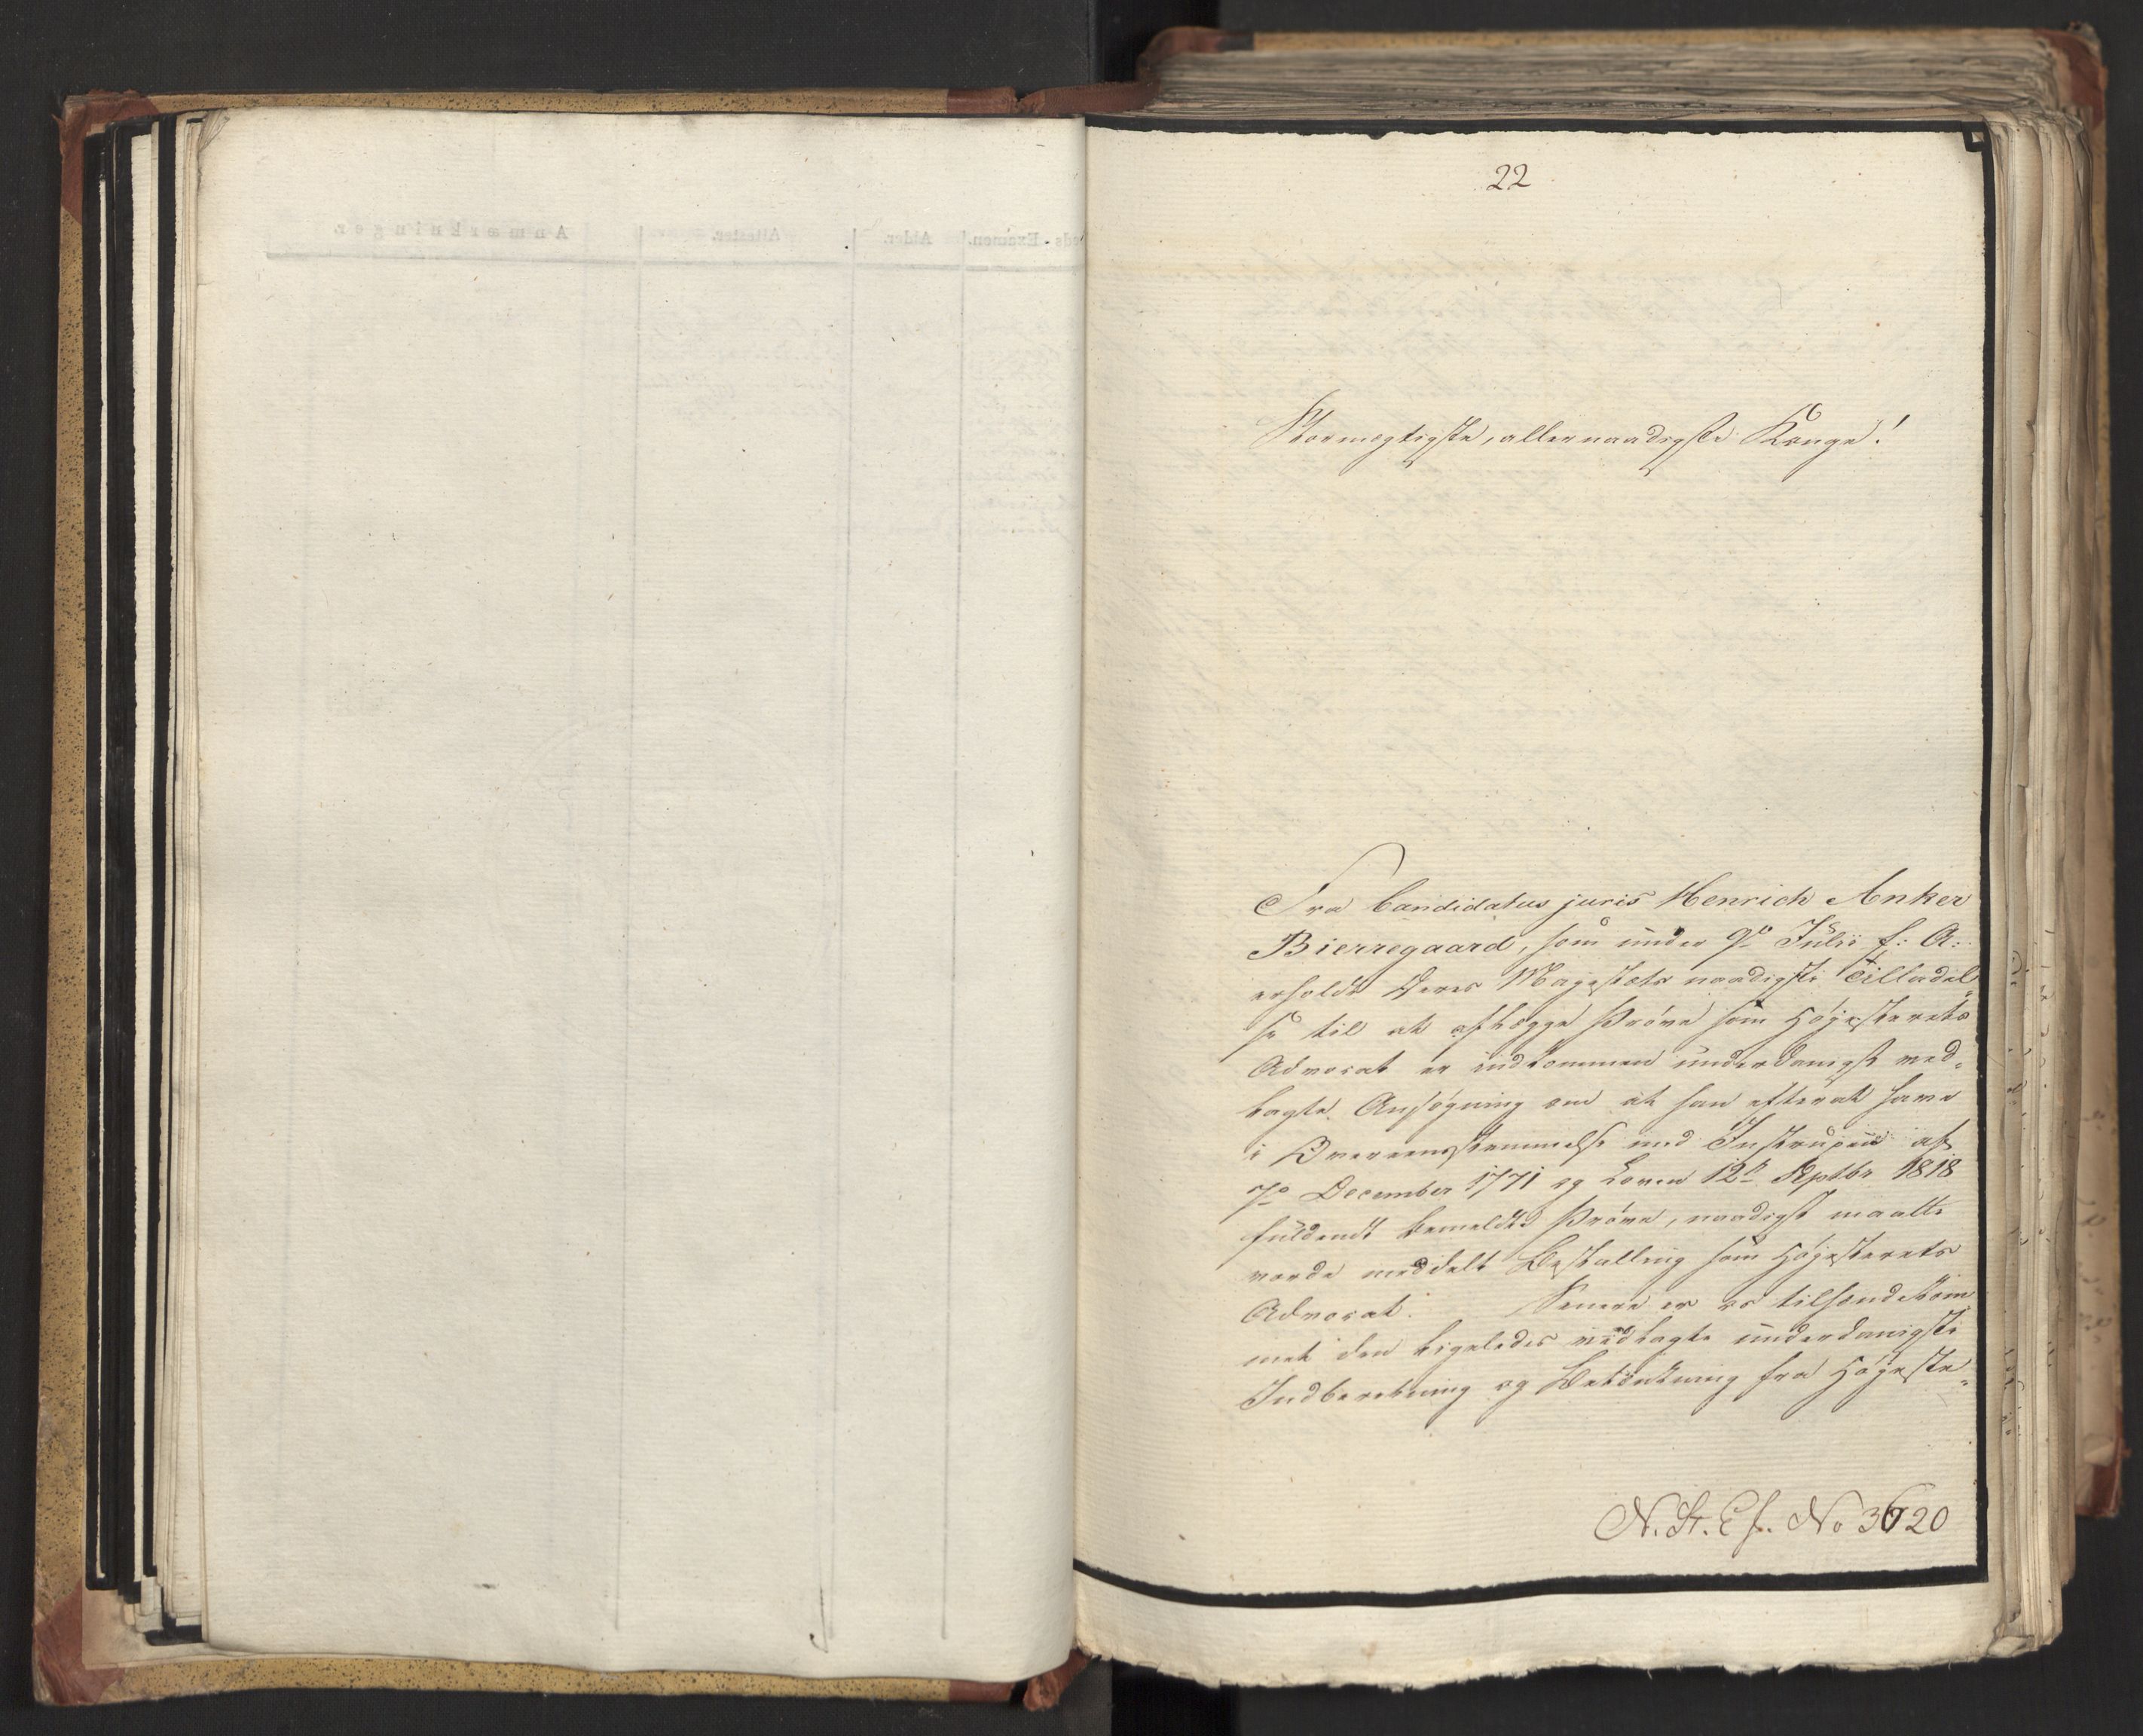 22
Stormægtigste, allernaadigste Konge!
Fra Candidatus juris Henrich Anker
Bierregaard, som under 9de Julii f: A:
erholdt Deres Majestæts naadigste Tilladel„
se til at aflægge Prøve som Høiesterets
Advocat er indkommen underdanigst ved„
lagte Ansøgning om at han efterat have
i Overeensstemmelse med Instruxen af
7de December 1771 og Loven 12te Septbr 1818
fuldendt bemeldte Prøve, naadigst maatte
vorde meddelt Bestalling som Høiesterets
Advocat. Senere er os tilsendt kom
met den ligeledes vedlagte underdanigste
Indberetning og Betænkning fra Høieste„
N. St. Ex. No 3620
Anmærkninger.
Attester.
Alder.
eds-Examen.